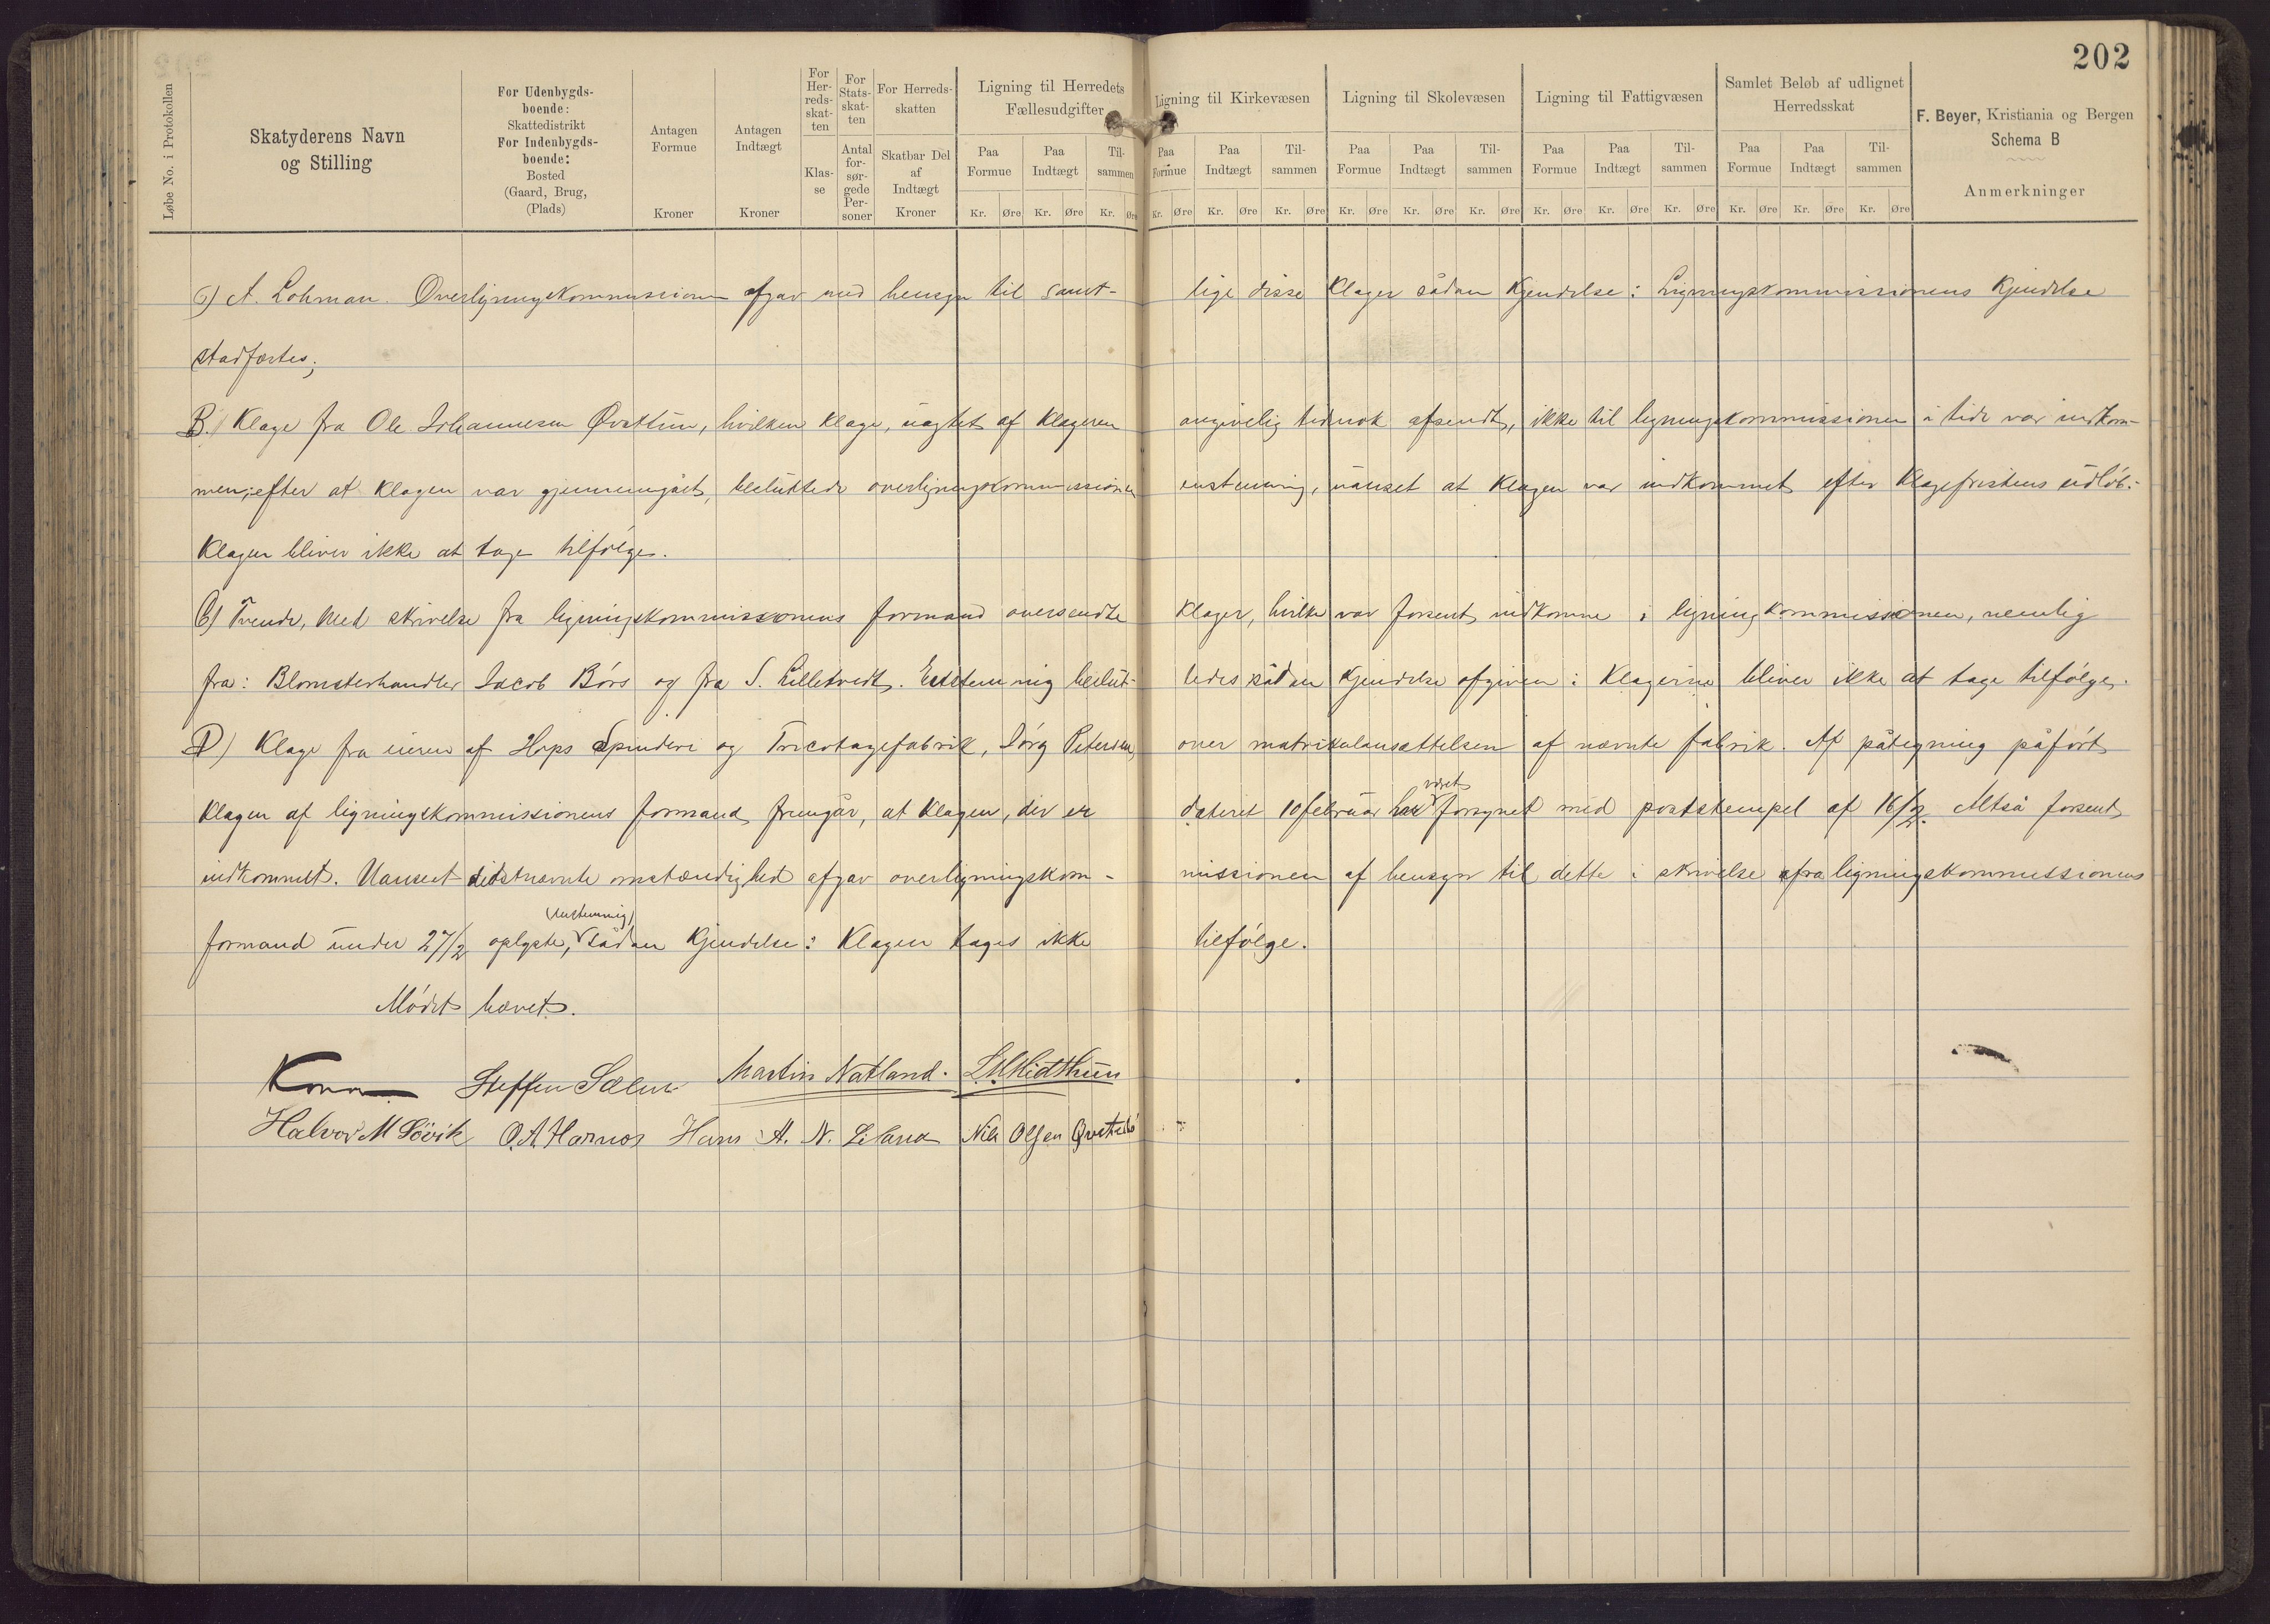 202
Løbe No. i Protokollen
Skatyderens Navn og Stilling
For Udenbygds-boende: Skattedistrikt For Indenbygds-boende: Bosted (Gaard, Brug, (Plads)
Antagen Formue Kroner
Antagen Indtægt Kroner
For Her-reds-skat-ten Klas-se
For Stats-skat-ten Antal for-sør-gede Per-soner
For Herreds-skatten Skatbar Del af Indtægt Kroner
Ligning til Herredets Fællesudgifter
Paa Formue Paa Indtægt Til-sammen
Kr. Øre Kr. Øre Kr. Øre
Ligning til Kirkevæsen
Paa Formue Paa Indtægt Til-sammen
Kr. Øre Kr. Øre Kr. Øre
Ligning til Skolevæsen
Paa Formue Paa Indtægt Til-sammen
Kr. Øre Kr. Øre Kr. Øre
Ligning til Fattigvæsen
Paa Formue Paa Indtægt Til-sammen
Kr. Øre Kr. Øre Kr. Øre
Samlet Beløb af udlignet Herredsskat
Paa Formue Paa Indtægt Til-sammen
Kr. Øre Kr. Øre Kr. Øre
F. Beyer, Kristiania og Bergen
Schema B
Anmerkninger
6) A. Lohman. Overligningskommissionen afgav med hensyn til samt- lige disse klager sådan kjendelse: Ligningskommissionens kjendelse
stadfæstes;
B.) Klage fra Ole Johannesen Øvsttun, hvilken klage, uagtet af klageren angivelig tidnok afsendt, ikke til ligningskommissionen i tide var indkom-
men; efter at klagen var gjennemgået, besluttede overligningskommissionen enstemmig, uanset at klagen var indkommet efter klagefristens udløb:
Klagen bliver ikke at tage tilfølge.
C) Trende, med skrivelse fra ligningskommissionens formand oversendte klager, hvilke var forsent indkomne i ligningskommissionen, nemlig
fra: Blomsterhandler Jacob Børs og fra S. Lilletvedt. Enstemmig beslut- tedes sådan kjendelse afgiven: Klagerne bliver ikke at tage tilfølge.
D) Klage fra eieren af Hops Spinderi og Tricotagefabrik, Jørg Petersen, over matrikulansættelsen af nævnte fabrik. Af påtegning påført
klagen af ligningskommissionens formand fremgår, at klagen, der er dateret 10 februar har været forsynet med poststempel af 16/2. Altså forsent
indkommet. Uanseet sidstnævnte omstændighed afgav overligningskom- missionen af hensyn til dette i skrivelse fra ligningskommissionens
formand under 27/2 oplyste, (enstemmig) sådan kjendelse: Klagen tages ikke tilfølge.
Mødet hævet.
Steffen Sælen Martin Natland. L M Midtthun
Halvor M Søvik O. A. Hamos Hans A. N. Liland Nils Olsen